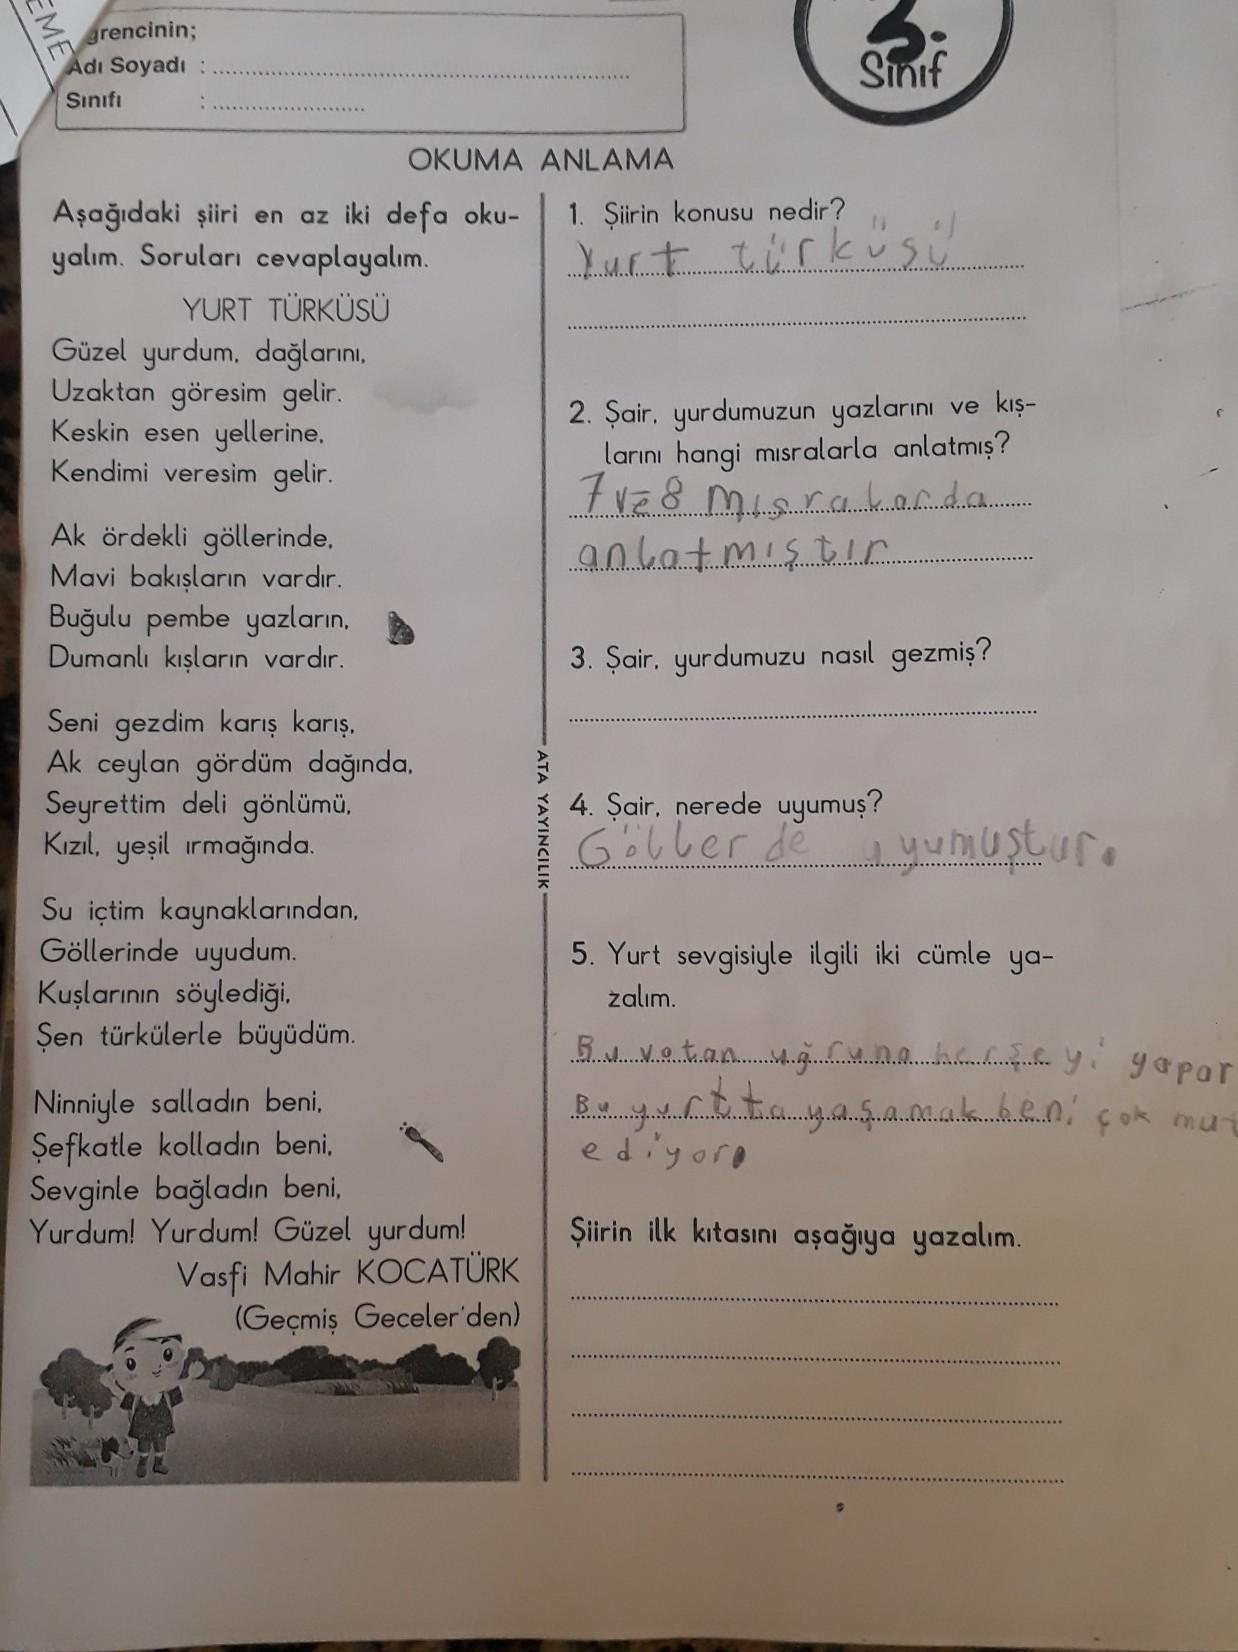 EME
ğrencinin;
Adı Soyadı : ......................................................
Sınıfı : ......................
3.
Sınıf
OKUMA ANLAMA
Aşağıdaki şiiri en az iki defa oku-
yalım. Soruları cevaplayalım.
YURT TÜRKÜSÜ
Güzel yurdum, dağlarını,
Uzaktan göresim gelir.
Keskin esen yellerine,
Kendimi veresim gelir.
Ak ördekli göllerinde,
Mavi bakışların vardır.
Buğulu pembe yazların,
Dumanlı kışların vardır.
Seni gezdim karış karış,
Ak ceylan gördüm dağında,
Seyrettim deli gönlümü,
Kızıl, yeşil ırmağında.
Su içtim kaynaklarından,
Göllerinde uyudum.
Kuşlarının söylediği,
Şen türkülerle büyüdüm.
Ninniyle salladın beni,
Şefkatle kolladın beni,
Sevginle bağladın beni,
Yurdum! Yurdum! Güzel yurdum!
Vasfi Mahir KOCATÜRK
(Geçmiş Geceler'den)
ATA YAYINCILIK
1. Şiirin konusu nedir?
Yurt türküsü
2. Şair, yurdumuzun yazlarını ve kış-
larını hangi mısralarla anlatmış?
7 ve 8 mısralarda
anlatmıştır
3. Şair, yurdumuzu nasıl gezmiş?
4. Şair, nerede uyumuş?
Göllerde uyumuştur.
5. Yurt sevgisiyle ilgili iki cümle ya-
zalım.
Bu vatan uğruna herşeyi yapar
Bu yurtta yaşamak beni çok mut
ediyor.
Şiirin ilk kıtasını aşağıya yazalım.